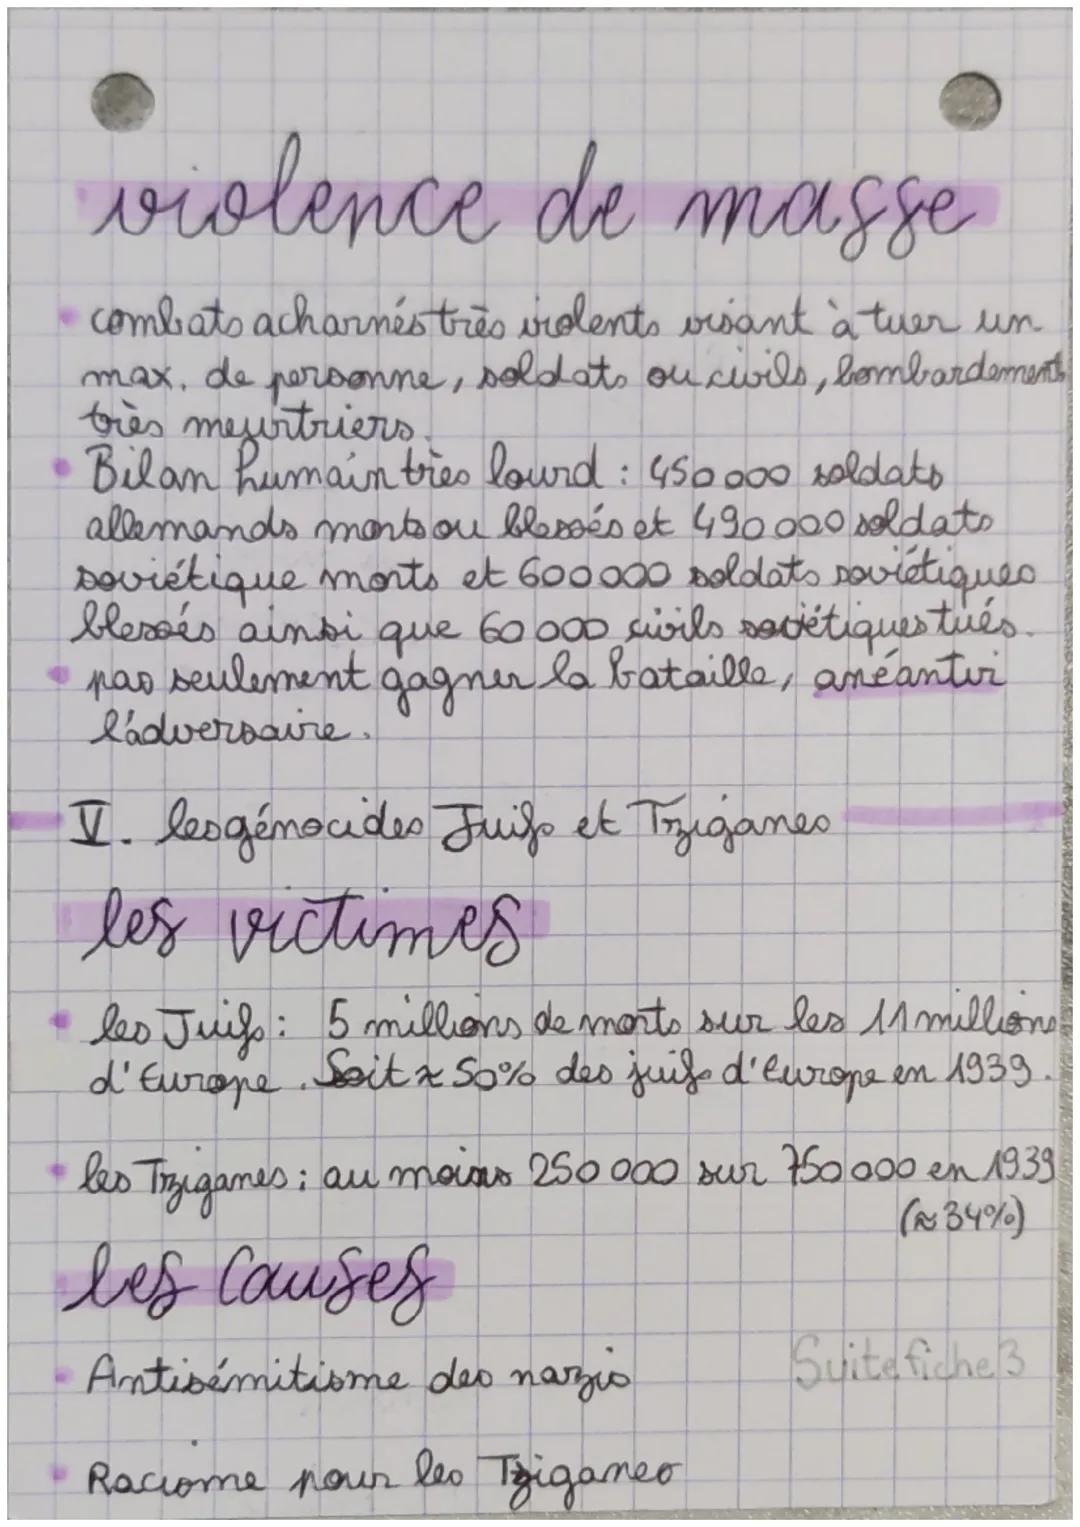 violence de masse
• combats acharnés très violents visant à tuer un
max. de personne, soldats ou civils, bombardements
très meurtriers.
• Bilan humain très lourd : 450 000 soldats
allemands morts ou blessés et 490 000 soldats
soviétique morts et 600 000 soldats soviétiques
blessés ainsi que 60 000 civils soviétiques tués.
• pas seulement gagner la bataille, anéantir
l'adversaire.
V. les génocides Juifs et Tziganes
les victimes
• les Juifs : 5 millions de morts sur les 11 millions
d'Europe. Soit ≈ 50% des juifs d'Europe en 1939.
• les Tziganes : au moins 250 000 sur 750 000 en 1939
(≈ 34%)
les Causes
• Antisémitisme des nazis
Suite fiche 3
• Racisme pour les Tziganes